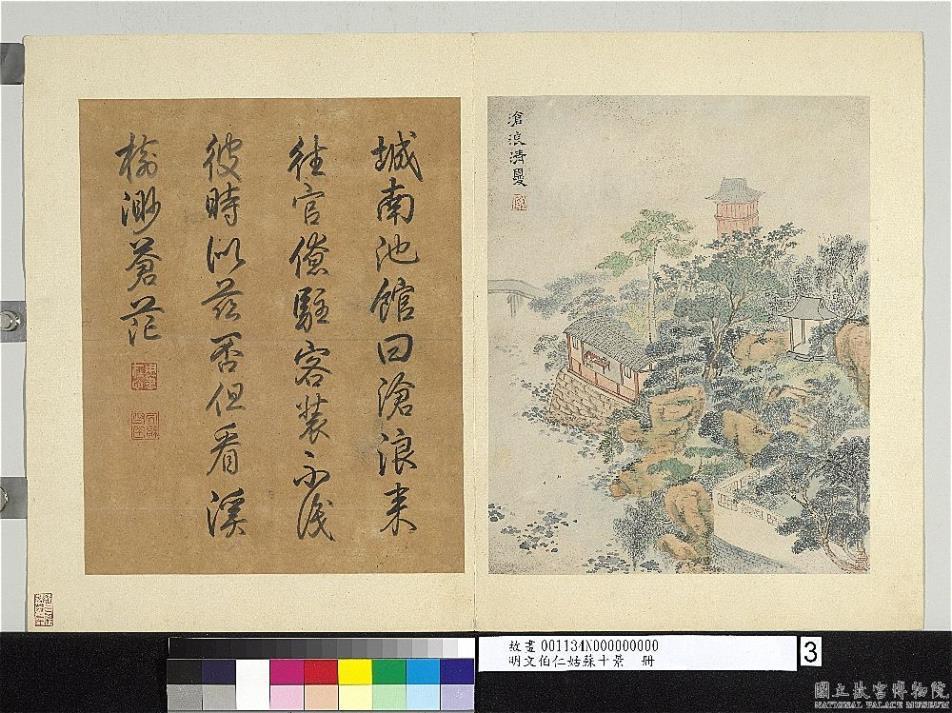 滄浪清夏
城南池館曰滄浪来
往官僚駐客裝不識
彼時似茲否但看溪
樹渺蒼茫
故畫 001134N000000000
明文伯仁姑蘇十景 冊
3
國立故宮博物院
NATIONAL PALACE MUSEUM